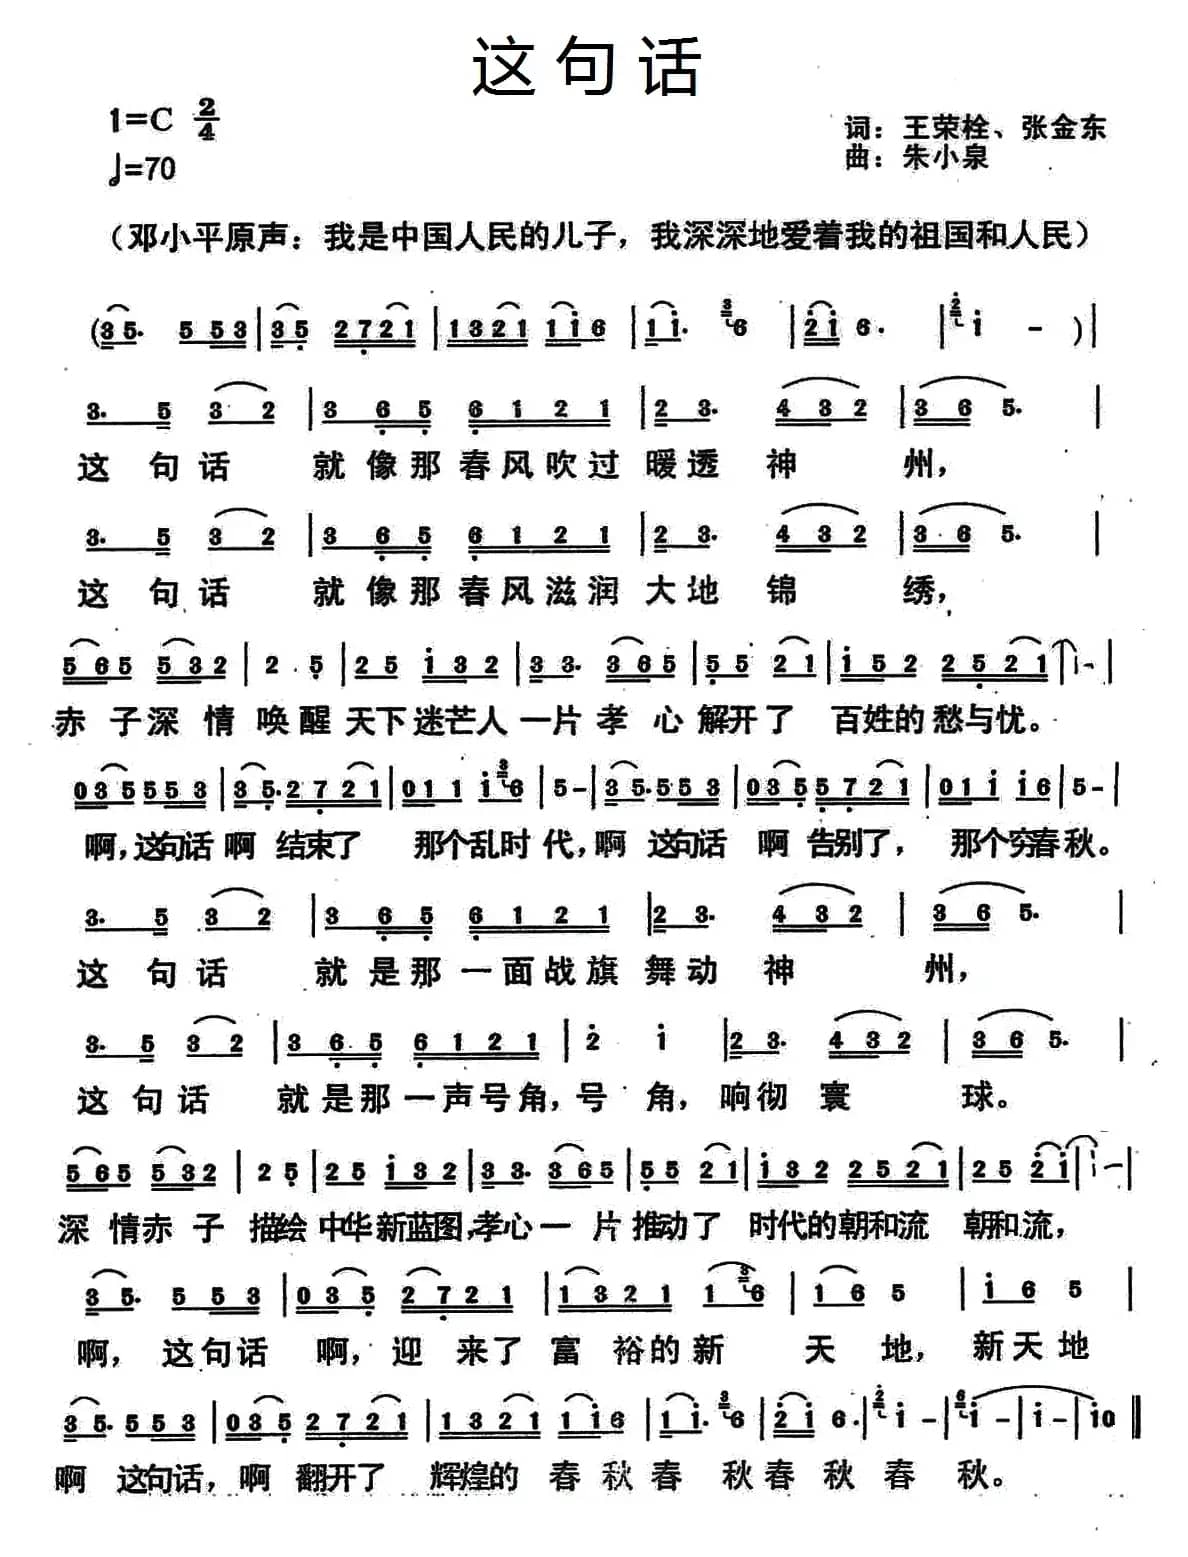 这句话
1=C 2/4
♩=70
词：王荣栓、张金东
曲：朱小泉
（邓小平原声：我是中国人民的儿子，我深深地爱着我的祖国和人民）
(3 5. 5 5 3 | 3 5 2 7 2 1 | 1 3 2 1 1 1 6 | 1 1. 3 6 | 2 1 6. | 2 1 - )|
3. 5 3 2 | 3 6 5 6 1 2 1 | 2 3. 4 3 2 | 3 6 5. |
这句话 就像那春风吹过暖透神州，
3. 5 3 2 | 3 6 5 6 1 2 1 | 2 3. 4 3 2 | 3 6 5. |
这句话 就像那春风滋润大地锦绣，
5 6 5 5 3 2 | 2 5 | 2 5 1 3 2 | 3 3. 3 6 5 | 5 5 2 1 | 1 5 2 2 5 2 1 | 1 - |
赤子深情唤醒天下迷芒人一片孝心解开了 百姓的愁与忧。
0 3 5 5 5 3 | 3 5. 2 7 2 1 | 0 1 1 1 3 6 | 5 - | 3 5. 5 5 3 | 0 3 5 5 7 2 1 | 0 1 1 1 6 | 5 - |
啊，这句话啊 结束了 那个乱时代，啊 这句话 啊 告别了， 那个穷春秋。
3. 5 3 2 | 3 6 5 6 1 2 1 | 2 3. 4 3 2 | 3 6 5. |
这句话 就是那一面战旗舞动神州，
3. 5 3 2 | 3 6 5 6 1 2 1 | 2 1 | 2 3. 4 3 2 | 3 6 5. |
这句话 就是那一声号角，号角，响彻寰球。
5 6 5 5 3 2 | 2 5 | 2 5 1 3 2 | 3 3. 3 6 5 | 5 5 2 1 | 1 3 2 2 5 2 1 | 2 5 2 1 | 1 - |
深情赤子描绘中华新蓝图，孝心一片推动了 时代的朝和流 朝和流，
3 5. 5 5 3 | 0 3 5 2 7 2 1 | 1 3 2 1 1 3 6 | 1 6 5 | 1 6 5 |
啊，这句话 啊，迎来了富裕的新天地，新天地
3 5. 5 5 3 | 0 3 5 2 7 2 1 | 1 3 2 1 1 1 6 | 1 1. 3 6 | 2 1 6. | 2 1 - | 6 1 - | 1 - | 1 0 ‖
啊 这句话，啊 翻开了 辉煌的春秋春秋春秋春秋。